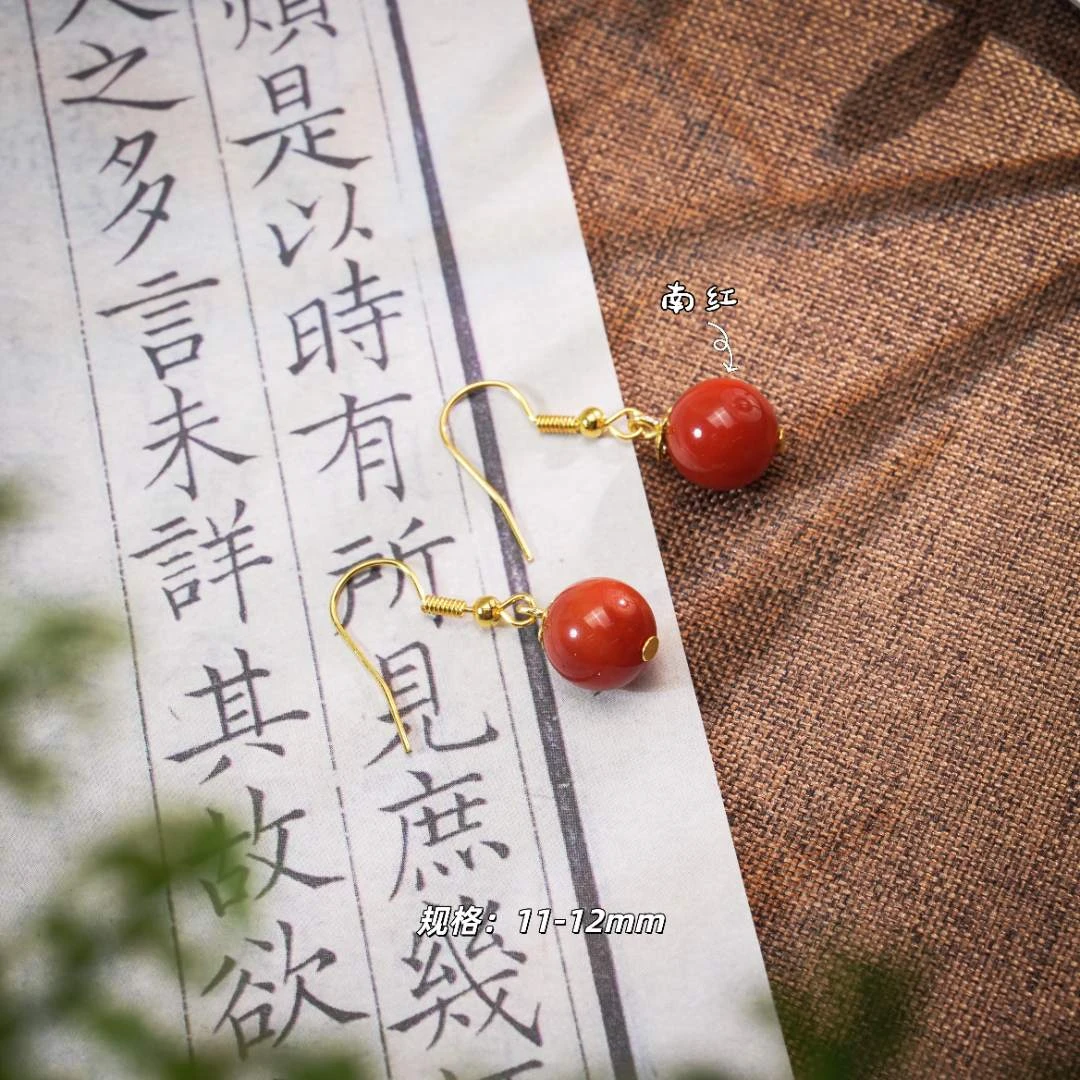 煩是以時有所見庶幾
之多言未詳其故欲
南红
规格：11-12mm